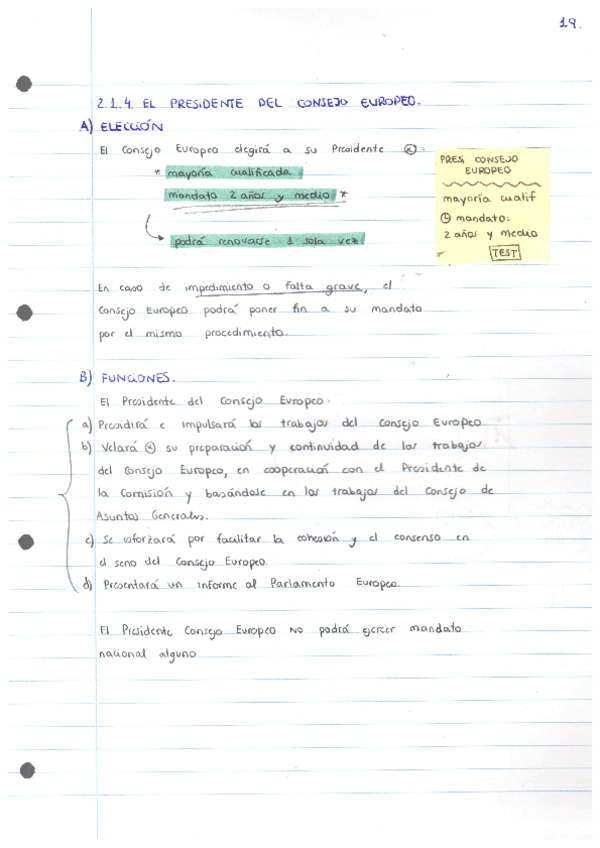 19.
2.1.4. EL PRESIDENTE DEL CONSEJO EUROPEO.
A) ELECCIÓN
El Consejo Europeo elegirá a su Presidente ⓧ:
* mayoría cualificada
mandato 2 años y medio *
podrá renovarse 1 sola vez
PRES. CONSEJO
EUROPEO
mayoría cualif
mandato:
2 años y medio
TEST
En caso de impedimento o falta grave, el
Consejo Europeo podrá poner fin a su mandato
por el mismo procedimiento.
B) FUNCIONES.
El Presidente del Consejo Europeo.
a) Presidirá e impulsará los trabajos del Consejo Europeo
b) Velará ⓧ su preparación y continuidad de los trabajos
del Consejo Europeo, en cooperación con el Presidente de
la Comisión y basándose en los trabajos del Consejo de
Asuntos Generales.
c) Se esforzará por facilitar la cohesión y el consenso en
el seno del Consejo Europeo.
d) Presentará un informe al Parlamento Europeo.
El Presidente Consejo Europeo NO podrá ejercer mandato
nacional alguno